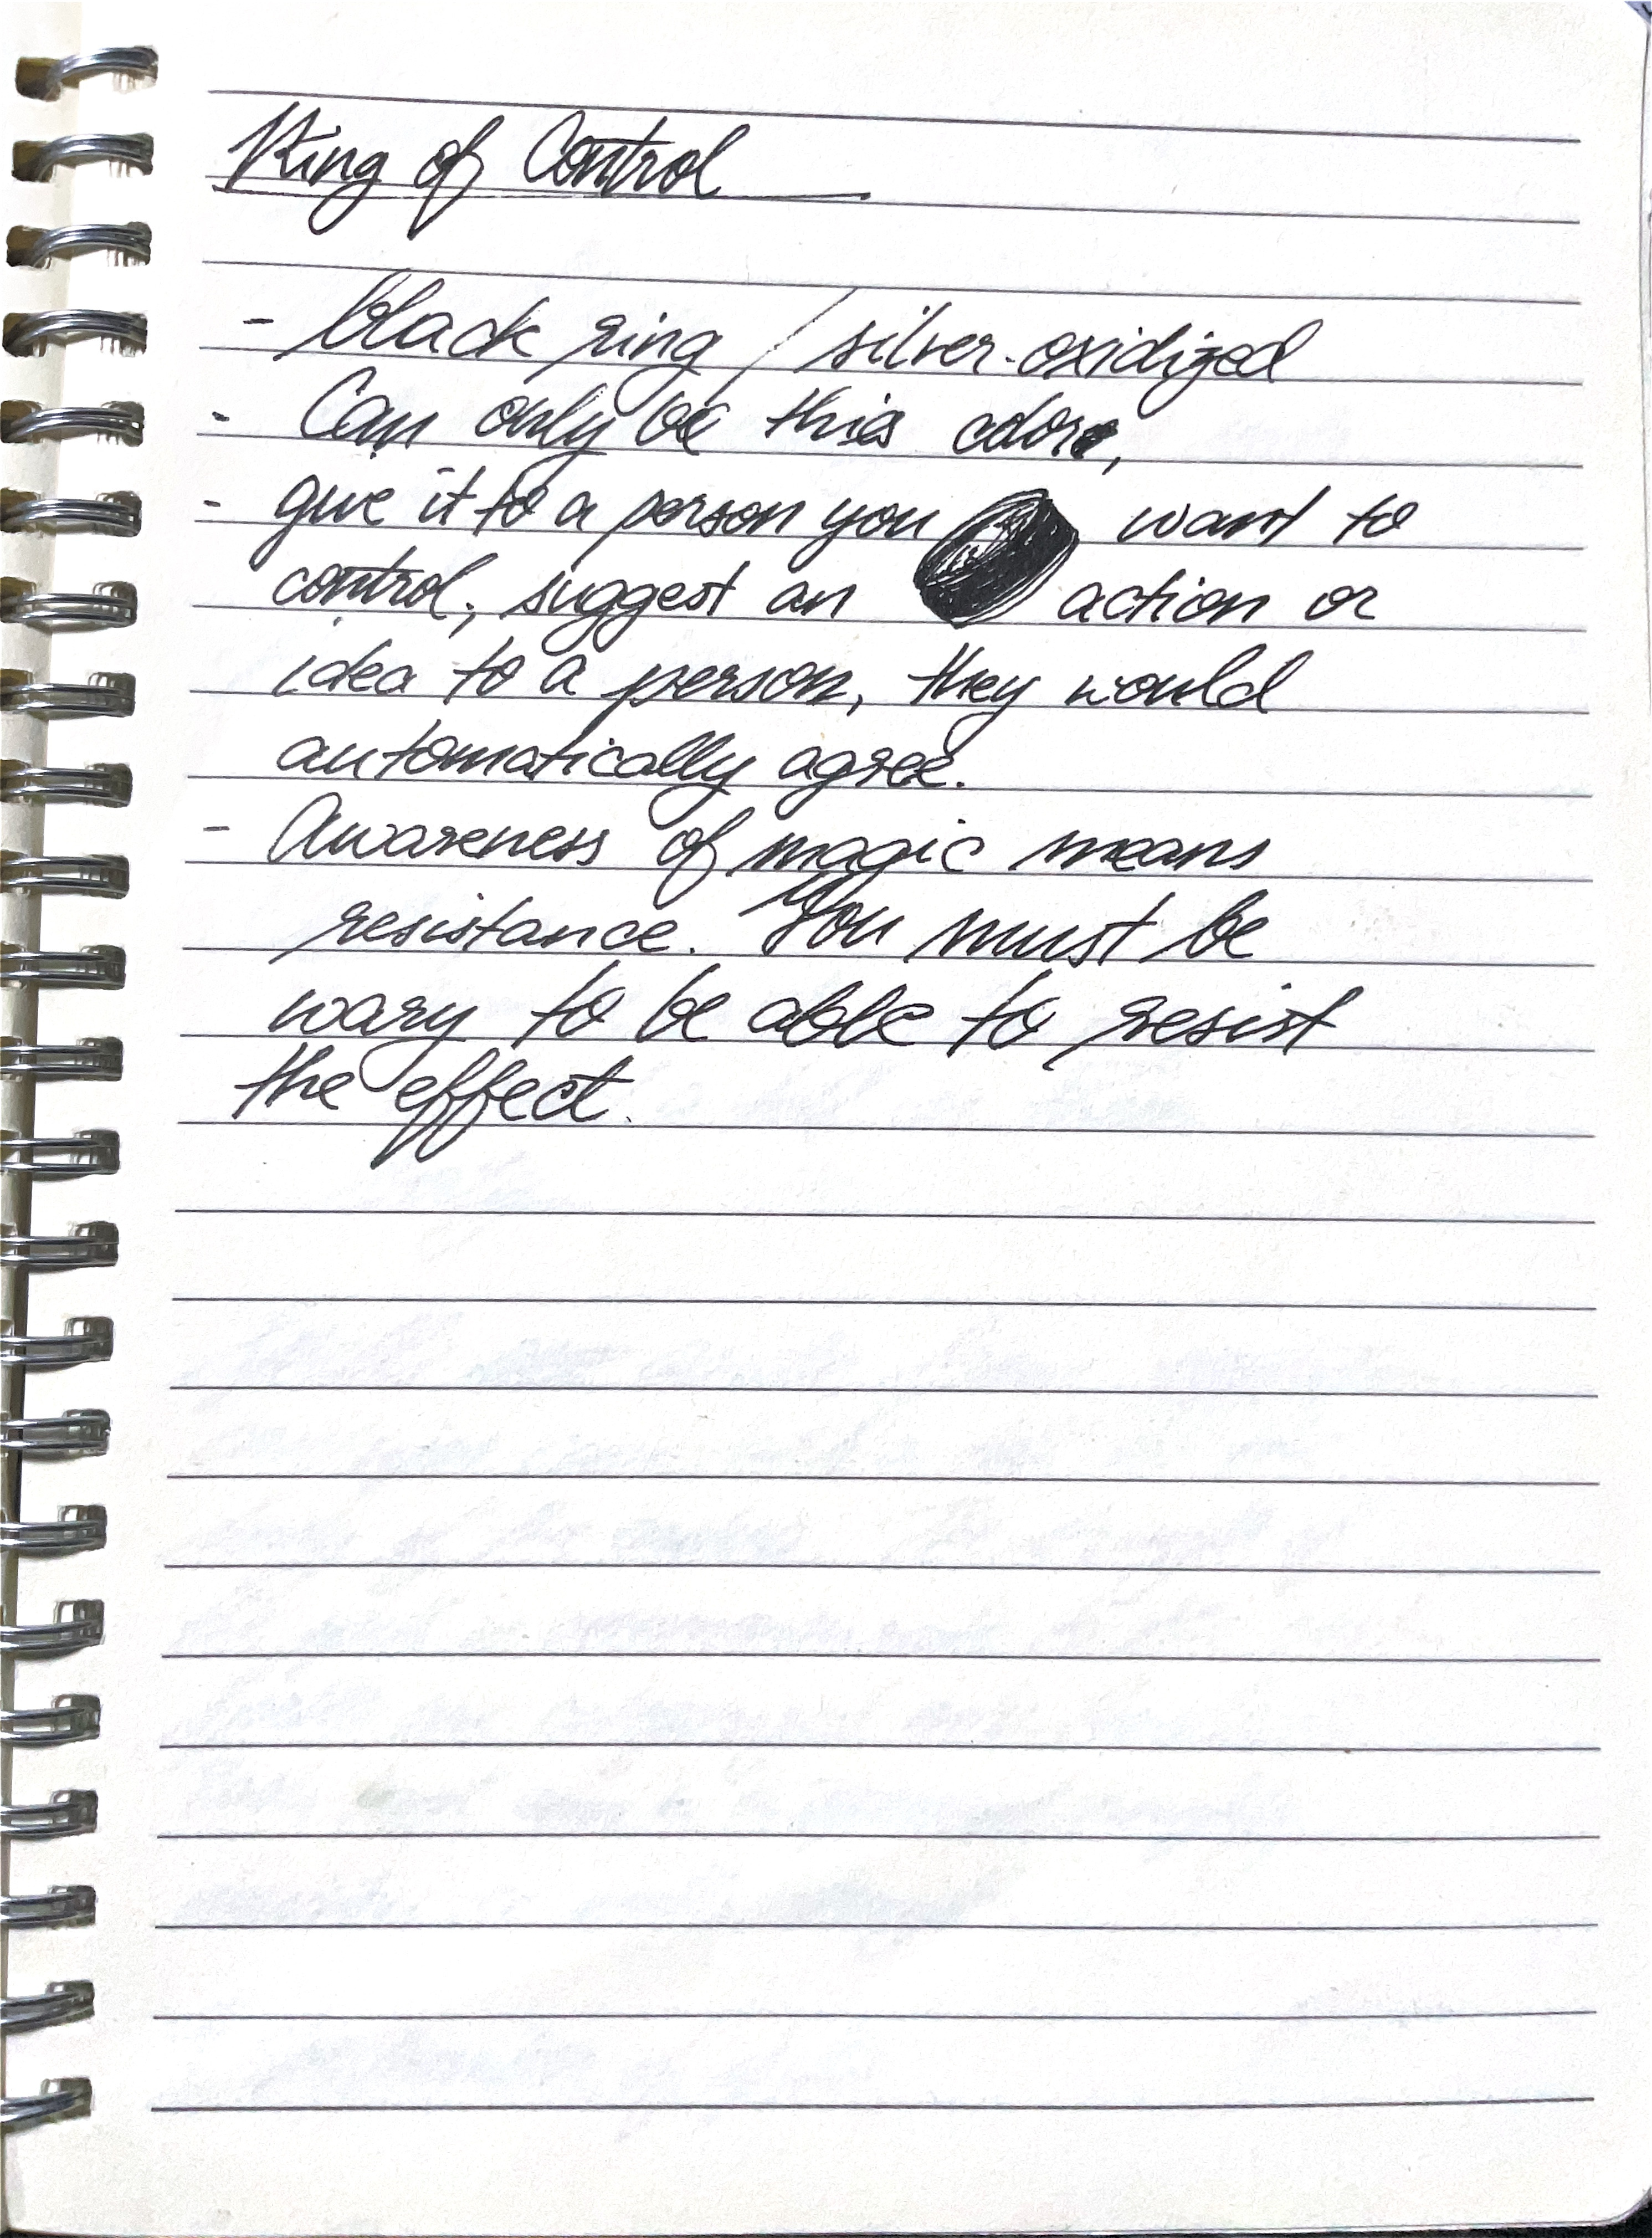 Ring of Control
- black ring / silver-oxidized
- Can only be this color,
- give it to a person you want to
control, suggest an action or
idea to a person, they would
automatically agree.
- Awareness of magic means
resistance. You must be
wary to be able to resist
the effect.